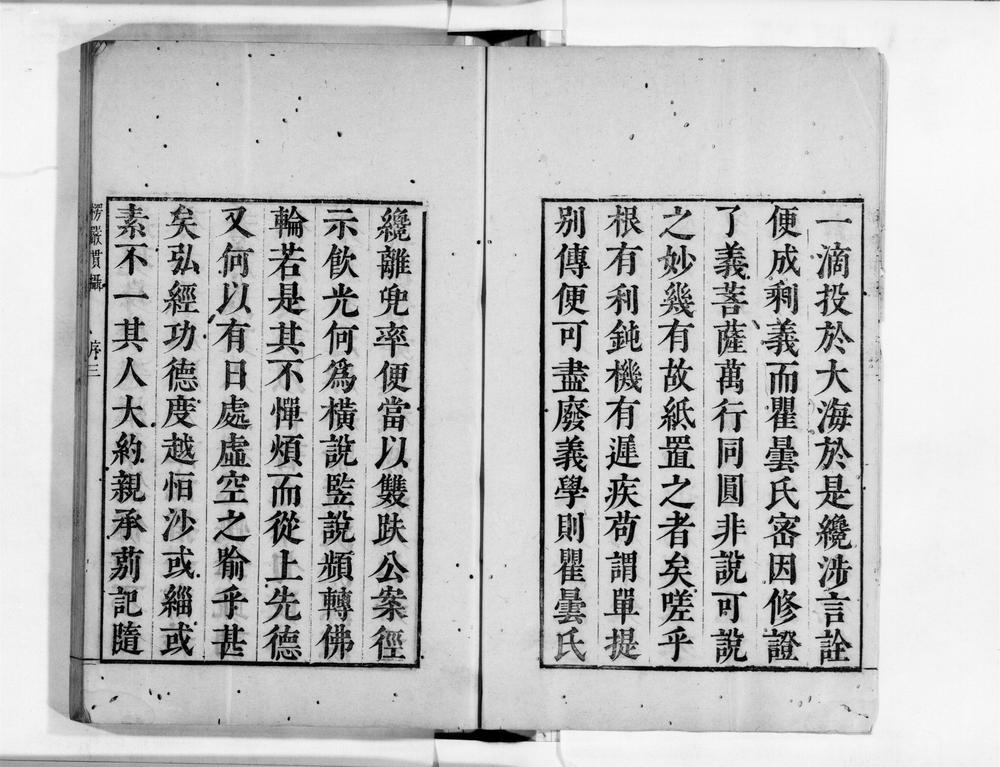 一滴投於大海於是纔涉言詮
便成剩義而瞿曇氏密因修證
了義菩薩萬行同圓非說可說
之妙幾有故紙置之者矣嗟乎
根有利鈍機有遲疾苟謂單提
別傳便可盡廢義學則瞿曇氏
纔離兜率便當以雙趺公案徑
示飲光何為橫說竪說頻轉佛
輪若是其不憚煩而從上先德
又何以有日處虛空之喻乎甚
矣弘經功德度越恒沙或緇或
素不一其人大約親承莂記隨
楞嚴貫攝 序 三